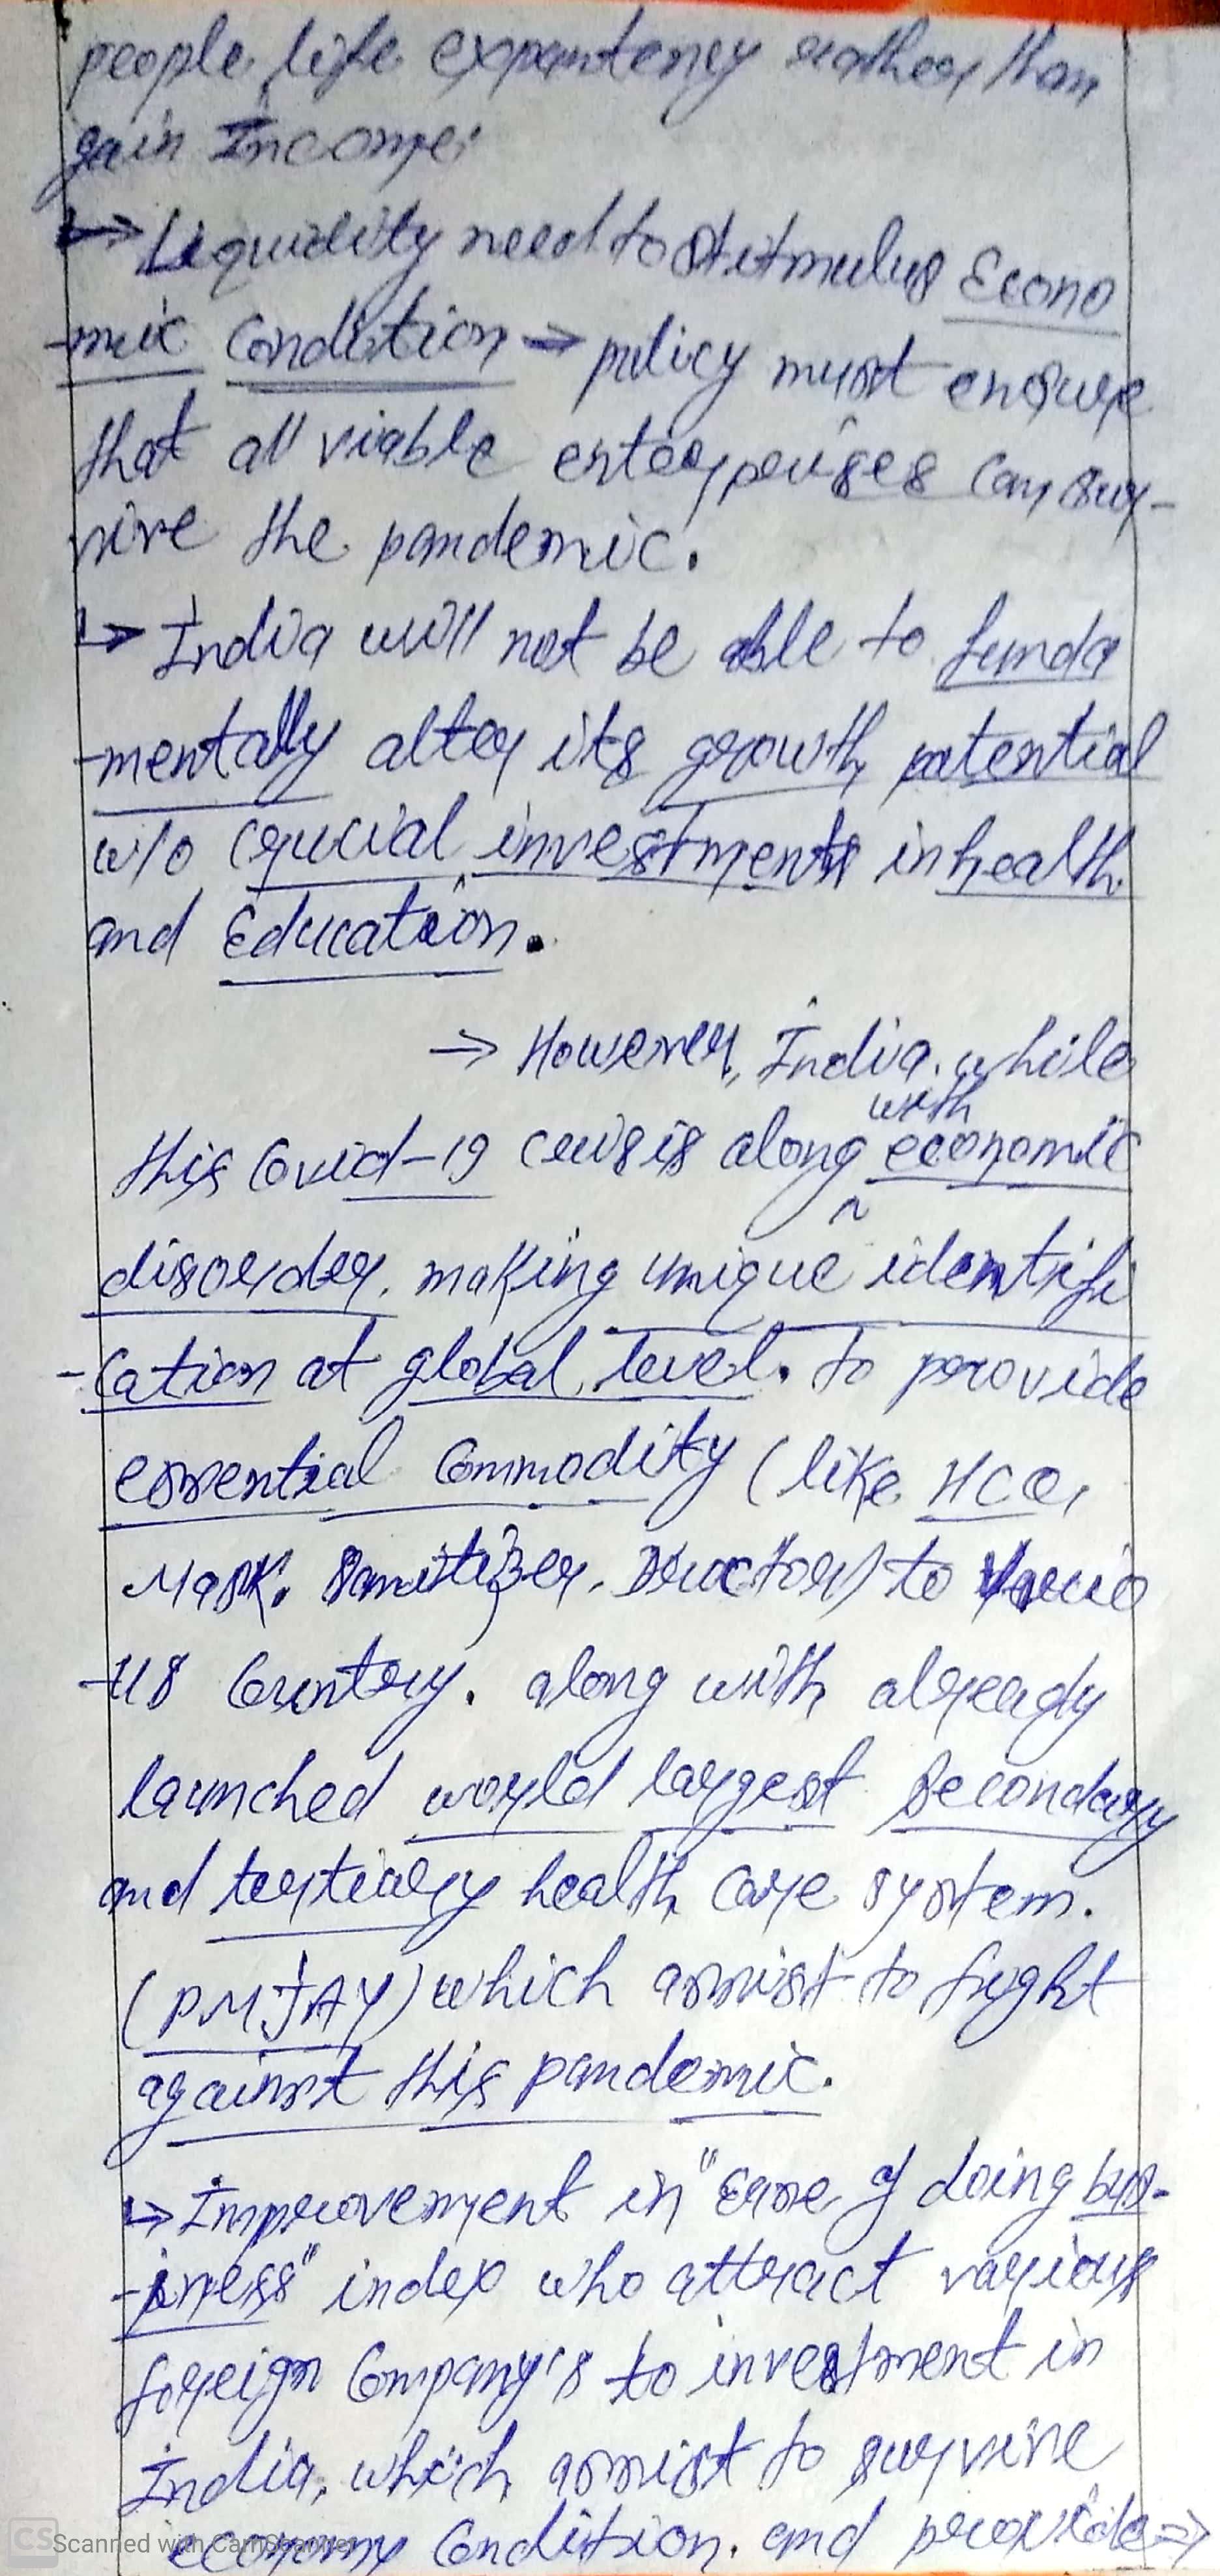 people life expentency rather than
gain Income.
↳ Liquidity need to stitmulus Econo
-mic Condition → policy must ensure
that all viable enterprises can sur-
vive the pandemic.
↳ India will not be able to funda
-mentally alter its growth potential
w/o crucial investments in health
and Education.
→ However, India. while
this Covid-19 crisis along with economic
disorder. making unique identifi
-cation at global level. to provide
essential Commodity (like HCQ,
Mask. Sanitizer. Doctor) to vario
-us Country. along with already
launched world largest Secondary
and tertiary health care system.
(PMJAY) which assist to fight
against this pandemic.
↳ Improvement in "Ease of doing bus-
-iness" index who attract various
foreign Company's to investment in
India, which assist to survive
economy Condition. and provide →
CS Scanned with CamScanner